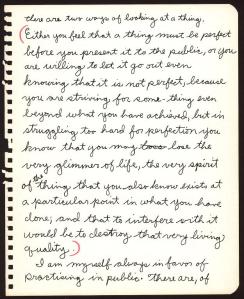 there are two ways of looking at a thing.
(Either you feel that a thing must be perfect
before you present it to the public, or you
are willing to let it go out even
knowing that it is not perfect, because
you are striving for some-thing even
beyond what you have achieved, but in
struggling too hard for perfection you
know that you may lose the
very glimmer of life, the very spirit
of the thing that you also know exists at
a particular point in what you have
done; and that to interfere with it
would be to destroy that very living
quality.)
I am myself always in favor of
practising in public. There are, of